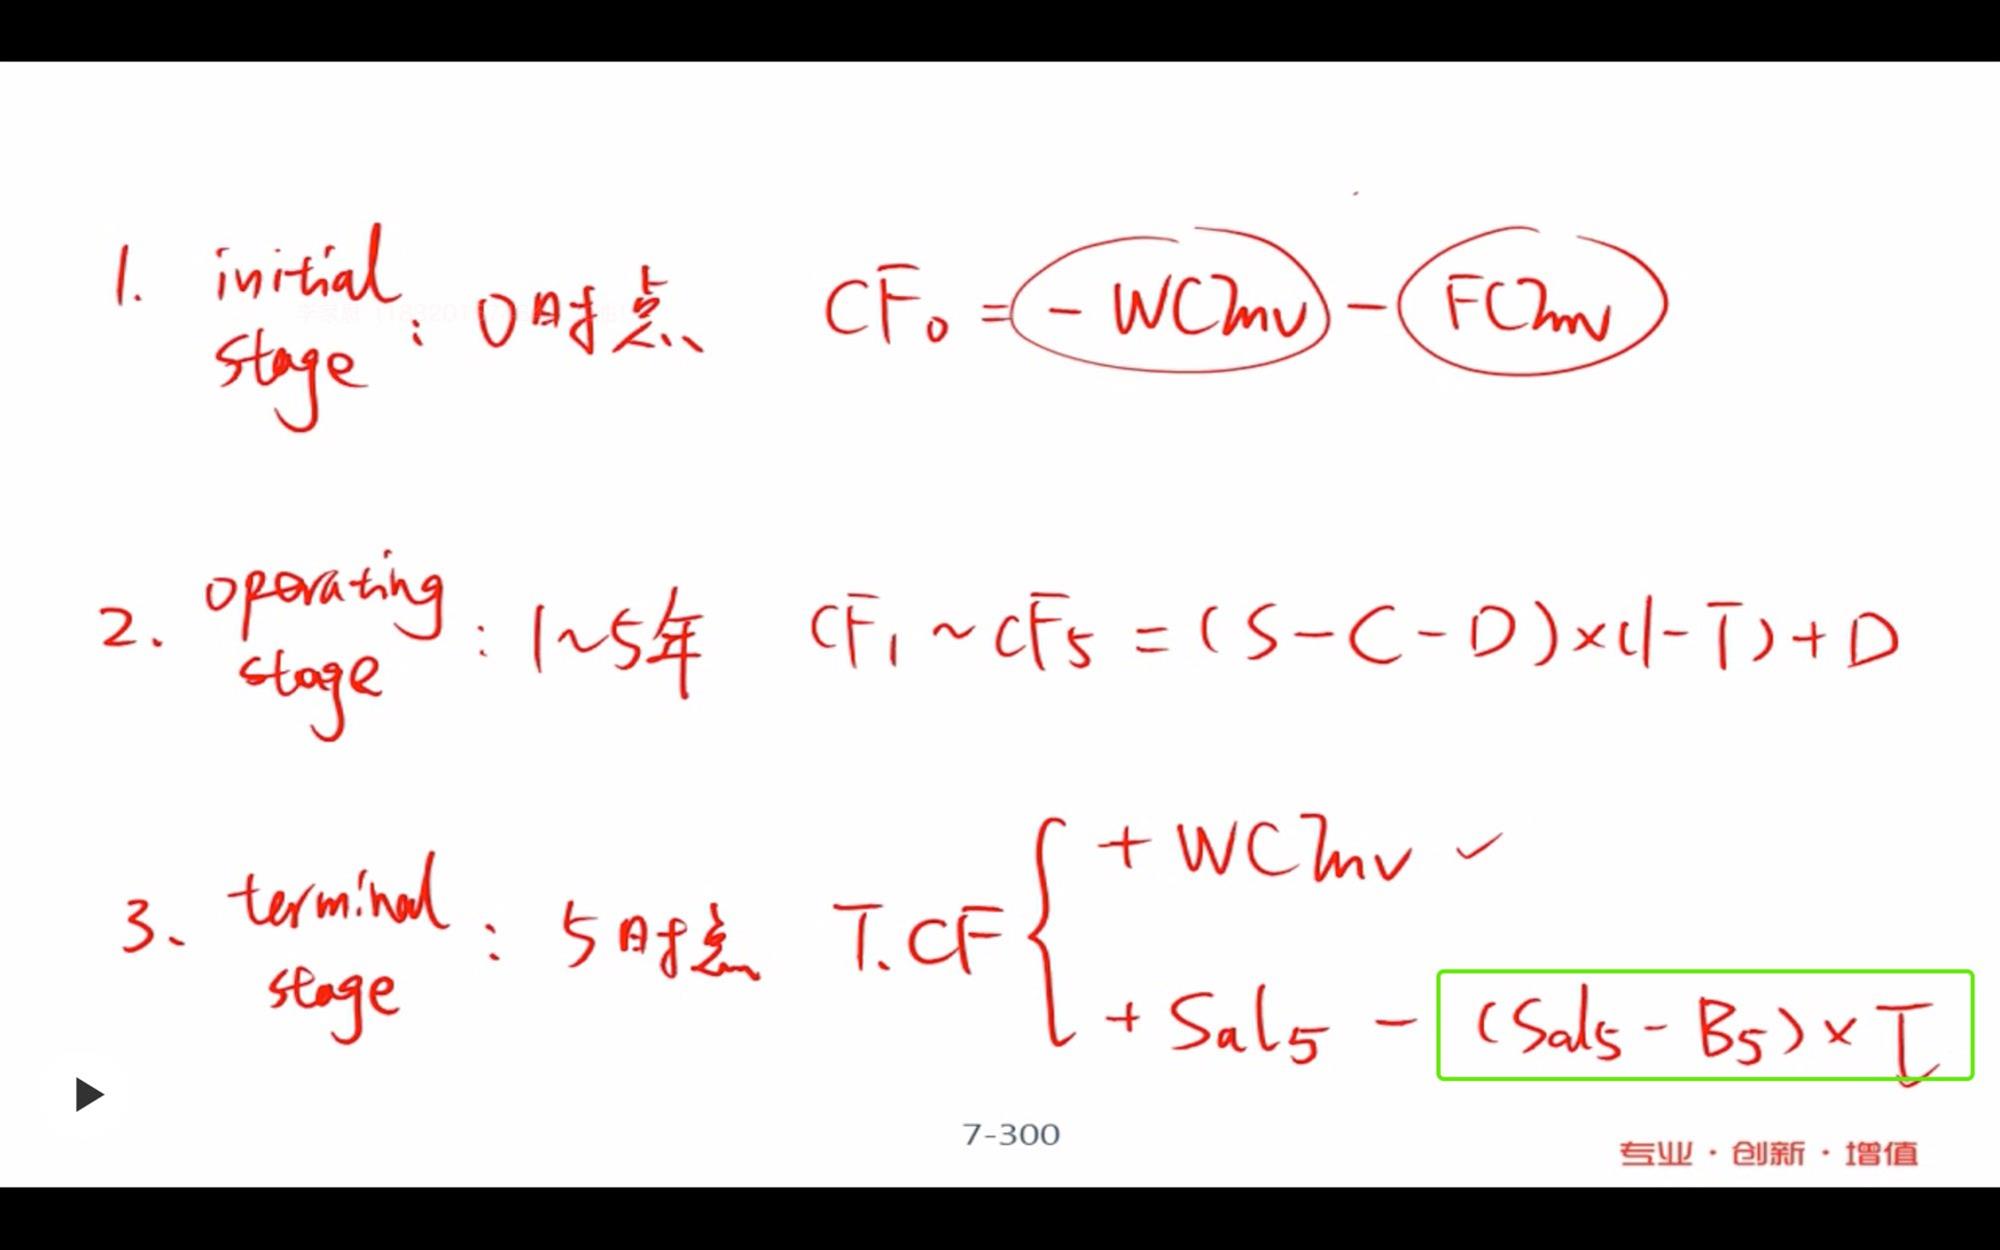 1. initial stage : 0时点 CF₀ = - WCInv - FCInv
2. operating stage : 1~5年 CF₁ ~ CF₅ = (S-C-D)×(1-T)+D
3. terminal stage : 5时点 T.CF { + WCInv ✓
+ Sal₅ - (Sal₅ - B₅) × T
7-300
专业·创新·增值